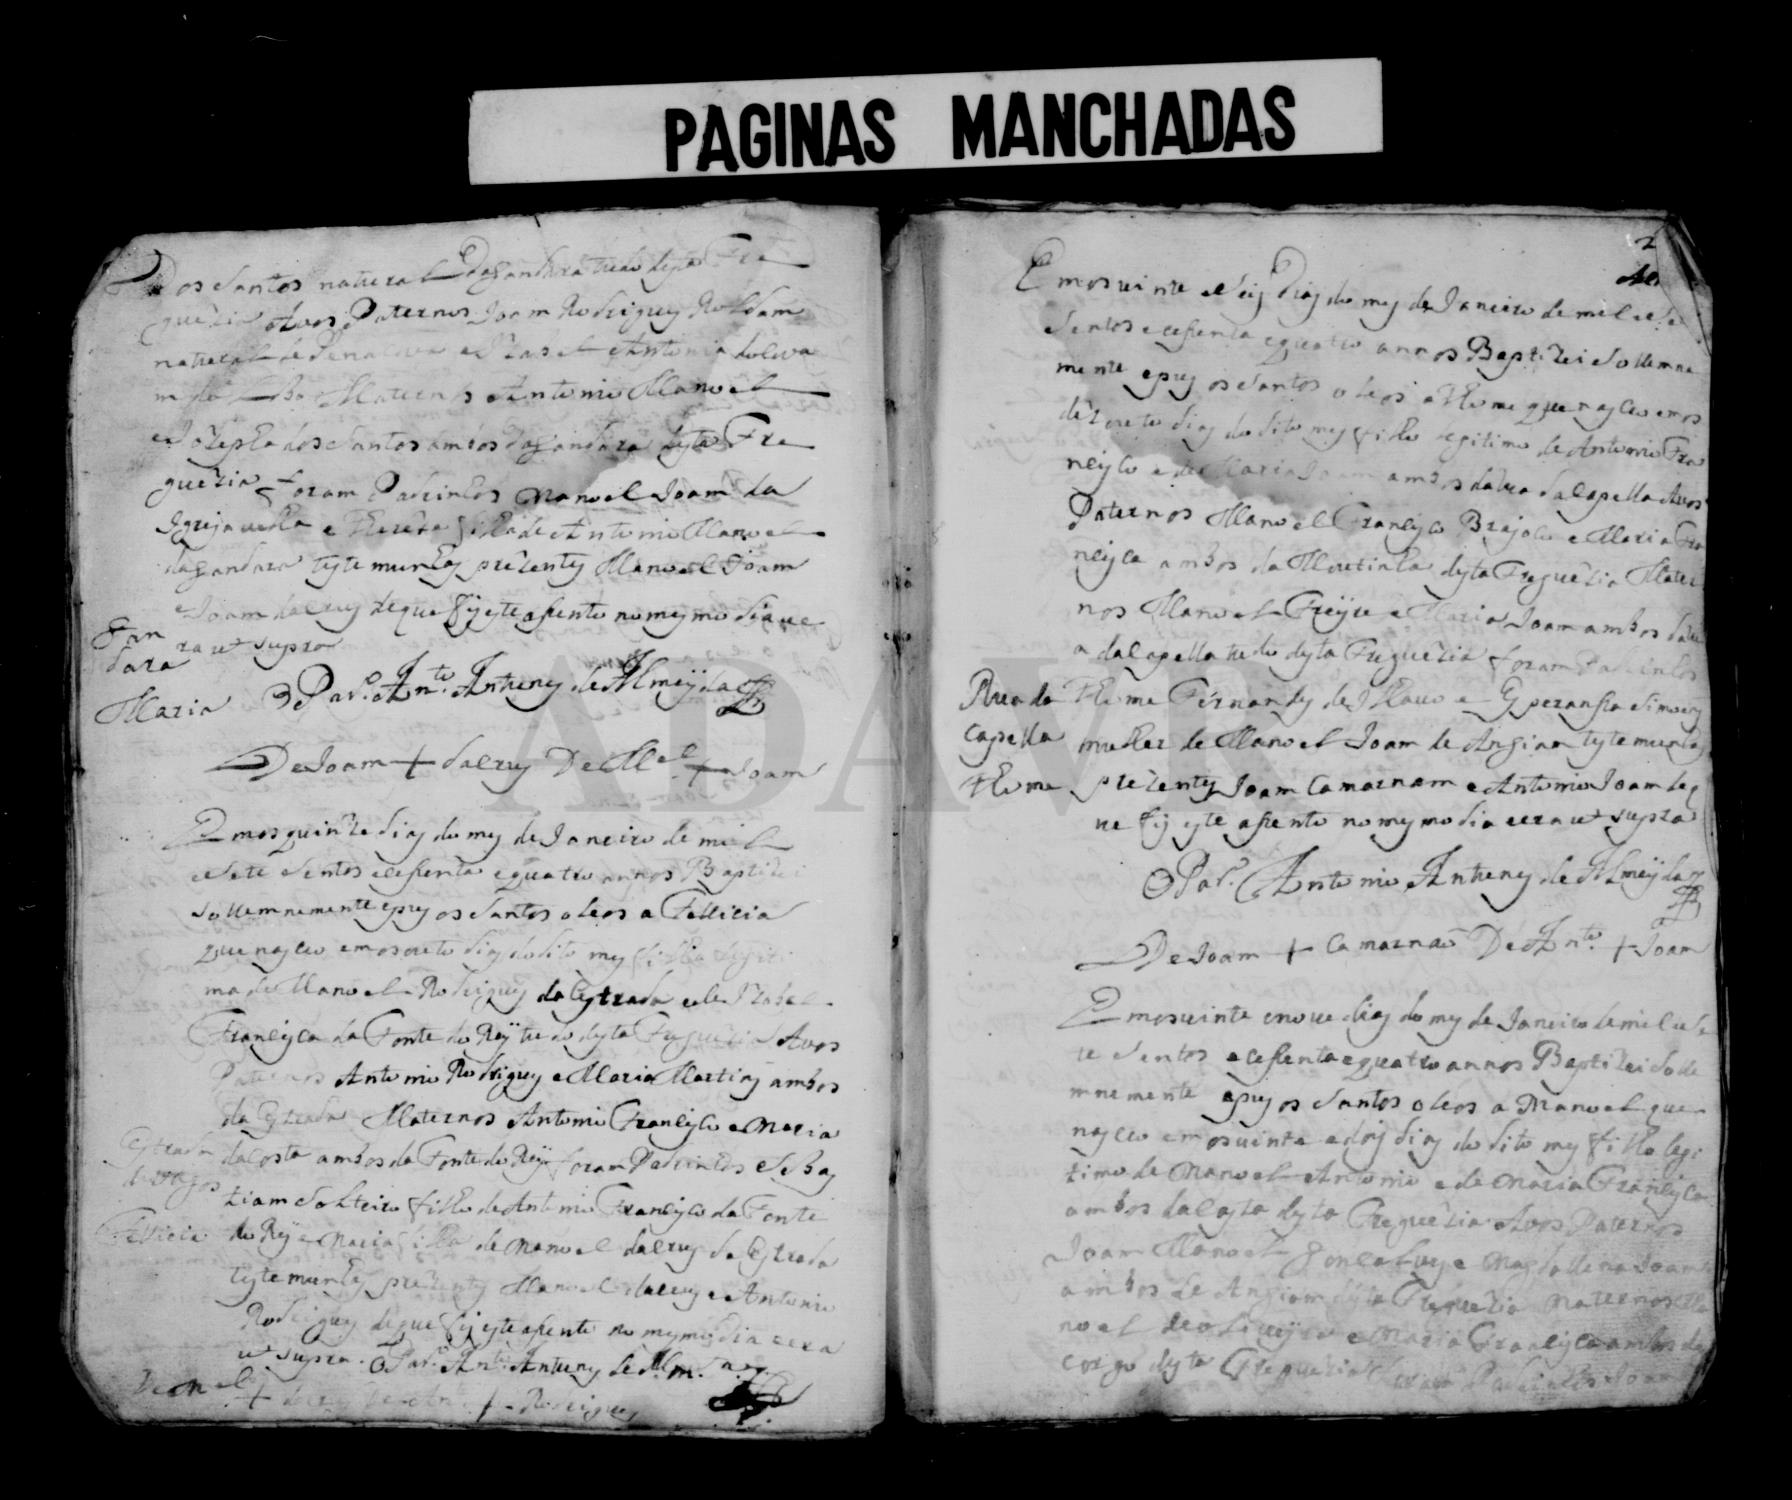 PAGINAS MANCHADAS
Dos Santos natural Dagandara tudo desta Fre
guezia Avos Paternos Joam Rodriguez Roldam
natural de Penacova e Izabel Antonia
Maternos Antonio Manoel
e Jozepha dos Santos ambos Dagandara desta Fre
guezia foram Padrinhos Manoel Joam da
Igreja velha e Thereza filha de Antonio Manoel
dagandara testemunhas prezentes Manoel Joam
e Joam dacruz de que fiz este asento no mesmo dia ue
ra ut supra
Gan
dara
Maria
O Par.º Ant.º Antunes de Almeyda
De Joam + dacruz De M.el + Joam
Emos quinze dias do mes de Janeiro de mil
e Sete Sentos e sesenta e quatro annos Baptizei
Sollemnemente e pus os Santos oleos a Fellicia
que nasceo emos oito dias do dito mes filha legiti
ma de Manoel Rodriguez da Estrada e de Izabel
Francisca da Fonte do Rey tudo desta Freguezia Avos
Paternos Antonio Rodriguez e Maria Martins ambos
da Estrada Maternos Antonio Francisco e Maria
dacosta ambos da Fonte do Rey foram Padrinhos e Sebas
tiam Solteiro filho de Antonio Francisco da Fonte
do Rey e Maria filha de Manoel dacruz da Estrada
testemunhas prezentes Manoel dacruz e Antonio
Rodriguez de que fiz este asento no mesmo dia e era
ut supra. O Par.º Ant.º Antunes de Alm.da
Estrada
de Vagos
Fellicia
De M.el + dacruz De Ant.º + Rodriguez
2
Emos vinte e Seis Dias do mes de Janeiro de mil e Sete
Sentos e sesenta e quatro annos Baptizei Sollemne
mente e pus os Santos oleos a Thome que nasceo emos
dezoito dias do dito mes filho legitimo de Antonio Fra
ncisco e de Maria Joam ambos da Rua da Capella Avos
Paternos Manoel Francisco Brejolo e Maria Fra
ncisca ambos da Moutinha desta Freguezia Mater
nos Manoel Freyre e Maria Joam ambos da Ru
a da Capella tudo desta Freguezia foram Padrinhos
Thome Fernandes de Ilhavo e Esperansa Simoes
mulher de Manoel Joam de Angiam testemunhas
prezentes Joam Camarnam e Antonio Joam de q
ue fiz este asento no mesmo dia e era ut supra
Rua da
Capella
Thome
O Par.º Antonio Antunes de Almeyda
De Joam + Camarnaõ De Ant.º + Joam
Emos vinte e nove dias do mes de Janeiro de mil e Se
te Sentos e sesenta e quatro annos Baptizei Sole
mnemente e pus os Santos oleos a Manoel que
nasceo emos vinte e dois dias do dito mes filho legi
timo de Manoel Antonio e de Maria Francisca
ambos da Costa desta Freguezia Avos Paternos
Joam Manoel Goncalves e Magdallena Joam
ambos de Angiam desta Freguezia Maternos Ma
noel de Oliveyra e Maria Francisca ambos do
Corgo desta Freguezia foram Padrinhos Joam
ADAVR